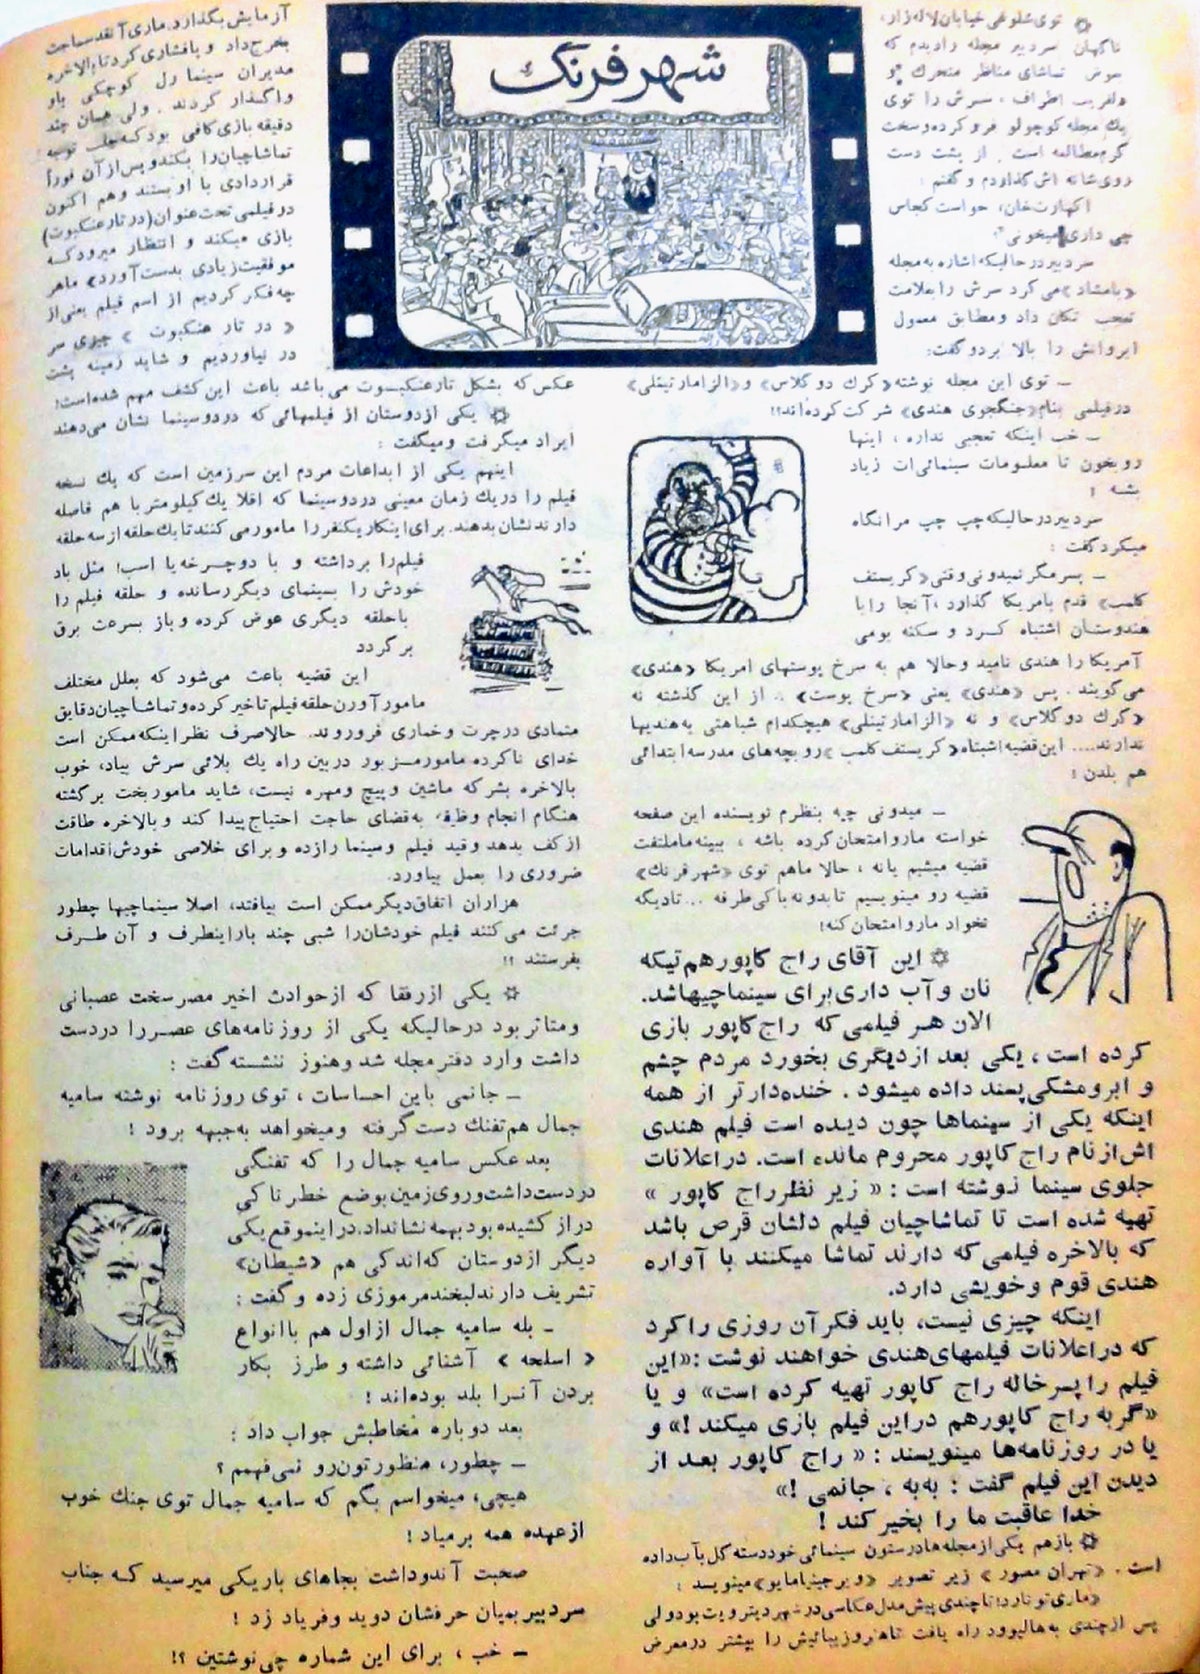 شهر فرنگ
توی شلوغی خیابان لاله‌زار،
ناگهان سردبیر مجله رادیدم که
بعوض تماشای مناظر متحرک و
دلفریب اطراف، سرش را توی
یك مجله کوچولو فرو کرده و سخت
گرم مطالعه است. از پشت دست
روی شانه اش گذاردم و گفتم:
حواست کجاس
چی داری میخونی؟
سردبیر در حالیکه اشاره به مجله
«بامشاد» می کرد سرش را بعلامت
تعجب تکان داد و مطابق معمول
ابروانش را بالا برد و گفت:
ـ توی این مجله نوشته «کرك دوگلاس» و «الزا مارتینلی»
در فیلمی بنام «جنگجوی هندی» شرکت کرده‌اند!!
ـ خب اینکه تعجبی نداره، اینها
رو بخون تا معلومات سینمائی‌ات زیاد
بشه!
سردبیر در حالیکه چپ چپ مرا نگاه
میکرد گفت:
ـ پسر مگر نمیدونی وقتی «کریستف
کلمب» قدم بامریکا گذارد، آنجا را با
هندوستان اشتباه کرد و سکنه بومی
آمریکا را هندی نامید و حالا هم به سرخ پوستهای امریکا «هندی»
می گویند. پس «هندی» یعنی «سرخ پوست».. از این گذشته نه
«کرك دوگلاس» و نه «الزا مارتینلی» هیچکدام شباهتی به هندیها
ندارند.... این قضیه اشتباه «کریستف کلمب» رو بچه‌های مدرسه ابتدائی
هم بلدن!
ـ میدونی چیه بنظرم نویسنده این صفحه
خواسته مارو امتحان کرده باشه، ببینه ما ملتفت
قضیه میشیم یا نه، حالا ما هم توی «شهر فرنك»
قضیه رو مینویسیم تا بدونه با کی طرفه ... تا دیگه
نخواد مارو امتحان کنه!
این آقای راج کاپور هم تیکه
نان و آب داری برای سینماچیها شد.
الان هر فیلمی که راج کاپور بازی
کرده است، یکی بعد از دیگری بخورد مردم چشم
و ابرو مشکی پسند داده میشود. خنده‌دارتر از همه
اینکه یکی از سینماها چون دیده است فیلم هندی
اش از نام راج کاپور محروم مانده است. در اعلانات
جلوی سینما نوشته است: «زیر نظر راج کاپور»
تهیه شده است تا تماشاچیان فیلم دلشان قرص باشد
که بالاخره فیلمی که دارند تماشا میکنند با آواره
هندی قوم و خویشی دارد.
اینکه چیزی نیست، باید فکر آن روزی را کرد
که در اعلانات فیلمهای هندی خواهند نوشت: «این
فیلم را پسر خاله راج کاپور تهیه کرده است» و یا
«گربه راج کاپور هم در این فیلم بازی میکند!» و
یا در روزنامه‌ها مینویسند: «راج کاپور بعد از
دیدن این فیلم گفت: به‌به، جانمی!»
خدا عاقبت ما را بخیر کند!
باز هم یکی از مجله‌ها در ستون سینمائی خود دسته گل بآب داده
است. «تهران مصور» زیر تصویر «ویرجینیا مایو» مینویسد:
تا چندی پیش مدل عکاسی در شهر دیترویت بود ولی
پس از چندی به هالیوود راه یافت تا هنر و زیبائیش را بیشتر در معرض
آزمایش بگذارد. ماری آنقدر سماجت
بخرج داد و پافشاری کرد تا بالاخره
مدیران سینما رل کوچکی باو
واگذار کردند. ولی همان چند
دقیقه بازی کافی بود که جلب توجه
تماشاچیان را بکند و پس از آن فوراً
قراردادی با او بستند و هم اکنون
در فیلمی تحت عنوان (در تار عنکبوت)
بازی میکند و انتظار میرود که
موفقیت زیادی بدست آورد» ما هر
چه فکر کردیم از اسم فیلم یعنی از
«در تار عنکبوت» چیزی سر
در نیاوردیم و شاید زمینه پشت
عکس که بشکل تار عنکبوت می‌باشد باعث این کشف مهم شده است!
یکی از دوستان از فیلمهائی که در دو سینما نشان می‌دهند
ایراد میگرفت و میگفت:
اینهم یکی از ابداعات مردم این سرزمین است که یك نسخه
فیلم را در یك زمان معینی در دو سینما که اقلا یك کیلومتر با هم فاصله
دارند نشان بدهند. برای اینکار یکنفر را مامور می کنند تا یك حلقه از سه حلقه
فیلم را برداشته و با دوچرخه یا اسب! مثل باد
خودش را بسینمای دیگر رسانده و حلقه فیلم را
با حلقه دیگری عوض کرده و باز بسرعت برق
برگردد
این قضیه باعث می‌شود که بعلل مختلف
مامور آوردن حلقه فیلم تاخیر کرده و تماشاچیان دقایق
متمادی در چرت و خماری فرو روند. حالا صرف نظر اینکه ممکن است
خدای ناکرده مامور مزبور در بین راه یك بلائی سرش بیاد، خوب
بالاخره بشر که ماشین و پیچ و مهره نیست، شاید مامور بخت برگشته
هنگام انجام وظیفه به قضای حاجت احتیاج پیدا کند و بالاخره طاقت
از کف بدهد و قید فیلم و سینما را زده و برای خلاصی خودش اقدامات
ضروری را بعمل بیاورد.
هزاران اتفاق دیگر ممکن است بیافتد، اصلا سینماچیها چطور
جرئت می کنند فیلم خودشان را شبی چند بار اینطرف و آن طرف
بفرستند؟!
یکی از رفقا که از حوادث اخیر مصر سخت عصبانی
و متاثر بود در حالیکه یکی از روزنامه‌های عصر را در دست
داشت وارد دفتر مجله شد و هنوز ننشسته گفت:
ـ جانمی باین احساسات، توی روزنامه نوشته سامیه
جمال هم تفنك دست گرفته و میخواهد به جبهه برود!
بعد عکس سامیه جمال را که تفنگی
در دست داشت و روی زمین بوضع خطرناکی
دراز کشیده بود بهمه نشان داد. در اینموقع یکی
دیگر از دوستان که اندکی هم «شیطان»
تشریف دارند لبخند مرموزی زده و گفت:
ـ بله سامیه جمال از اول هم با انواع
«اسلحه» آشنائی داشته و طرز بکار
بردن آنرا بلد بوده‌اند!
بعد دوباره مخاطبش جواب داد:
ـ چطور، منظورتون رو نمی فهمم؟
هیچی، میخواسم بگم که سامیه جمال توی جنك خوب
از عهده همه بر میاد!
صحبت آندو داشت بجاهای باریکی میرسید که جناب
سردبیر بمیان حرفشان دوید و فریاد زد!
ـ خب، برای این شماره چی نوشتین؟!